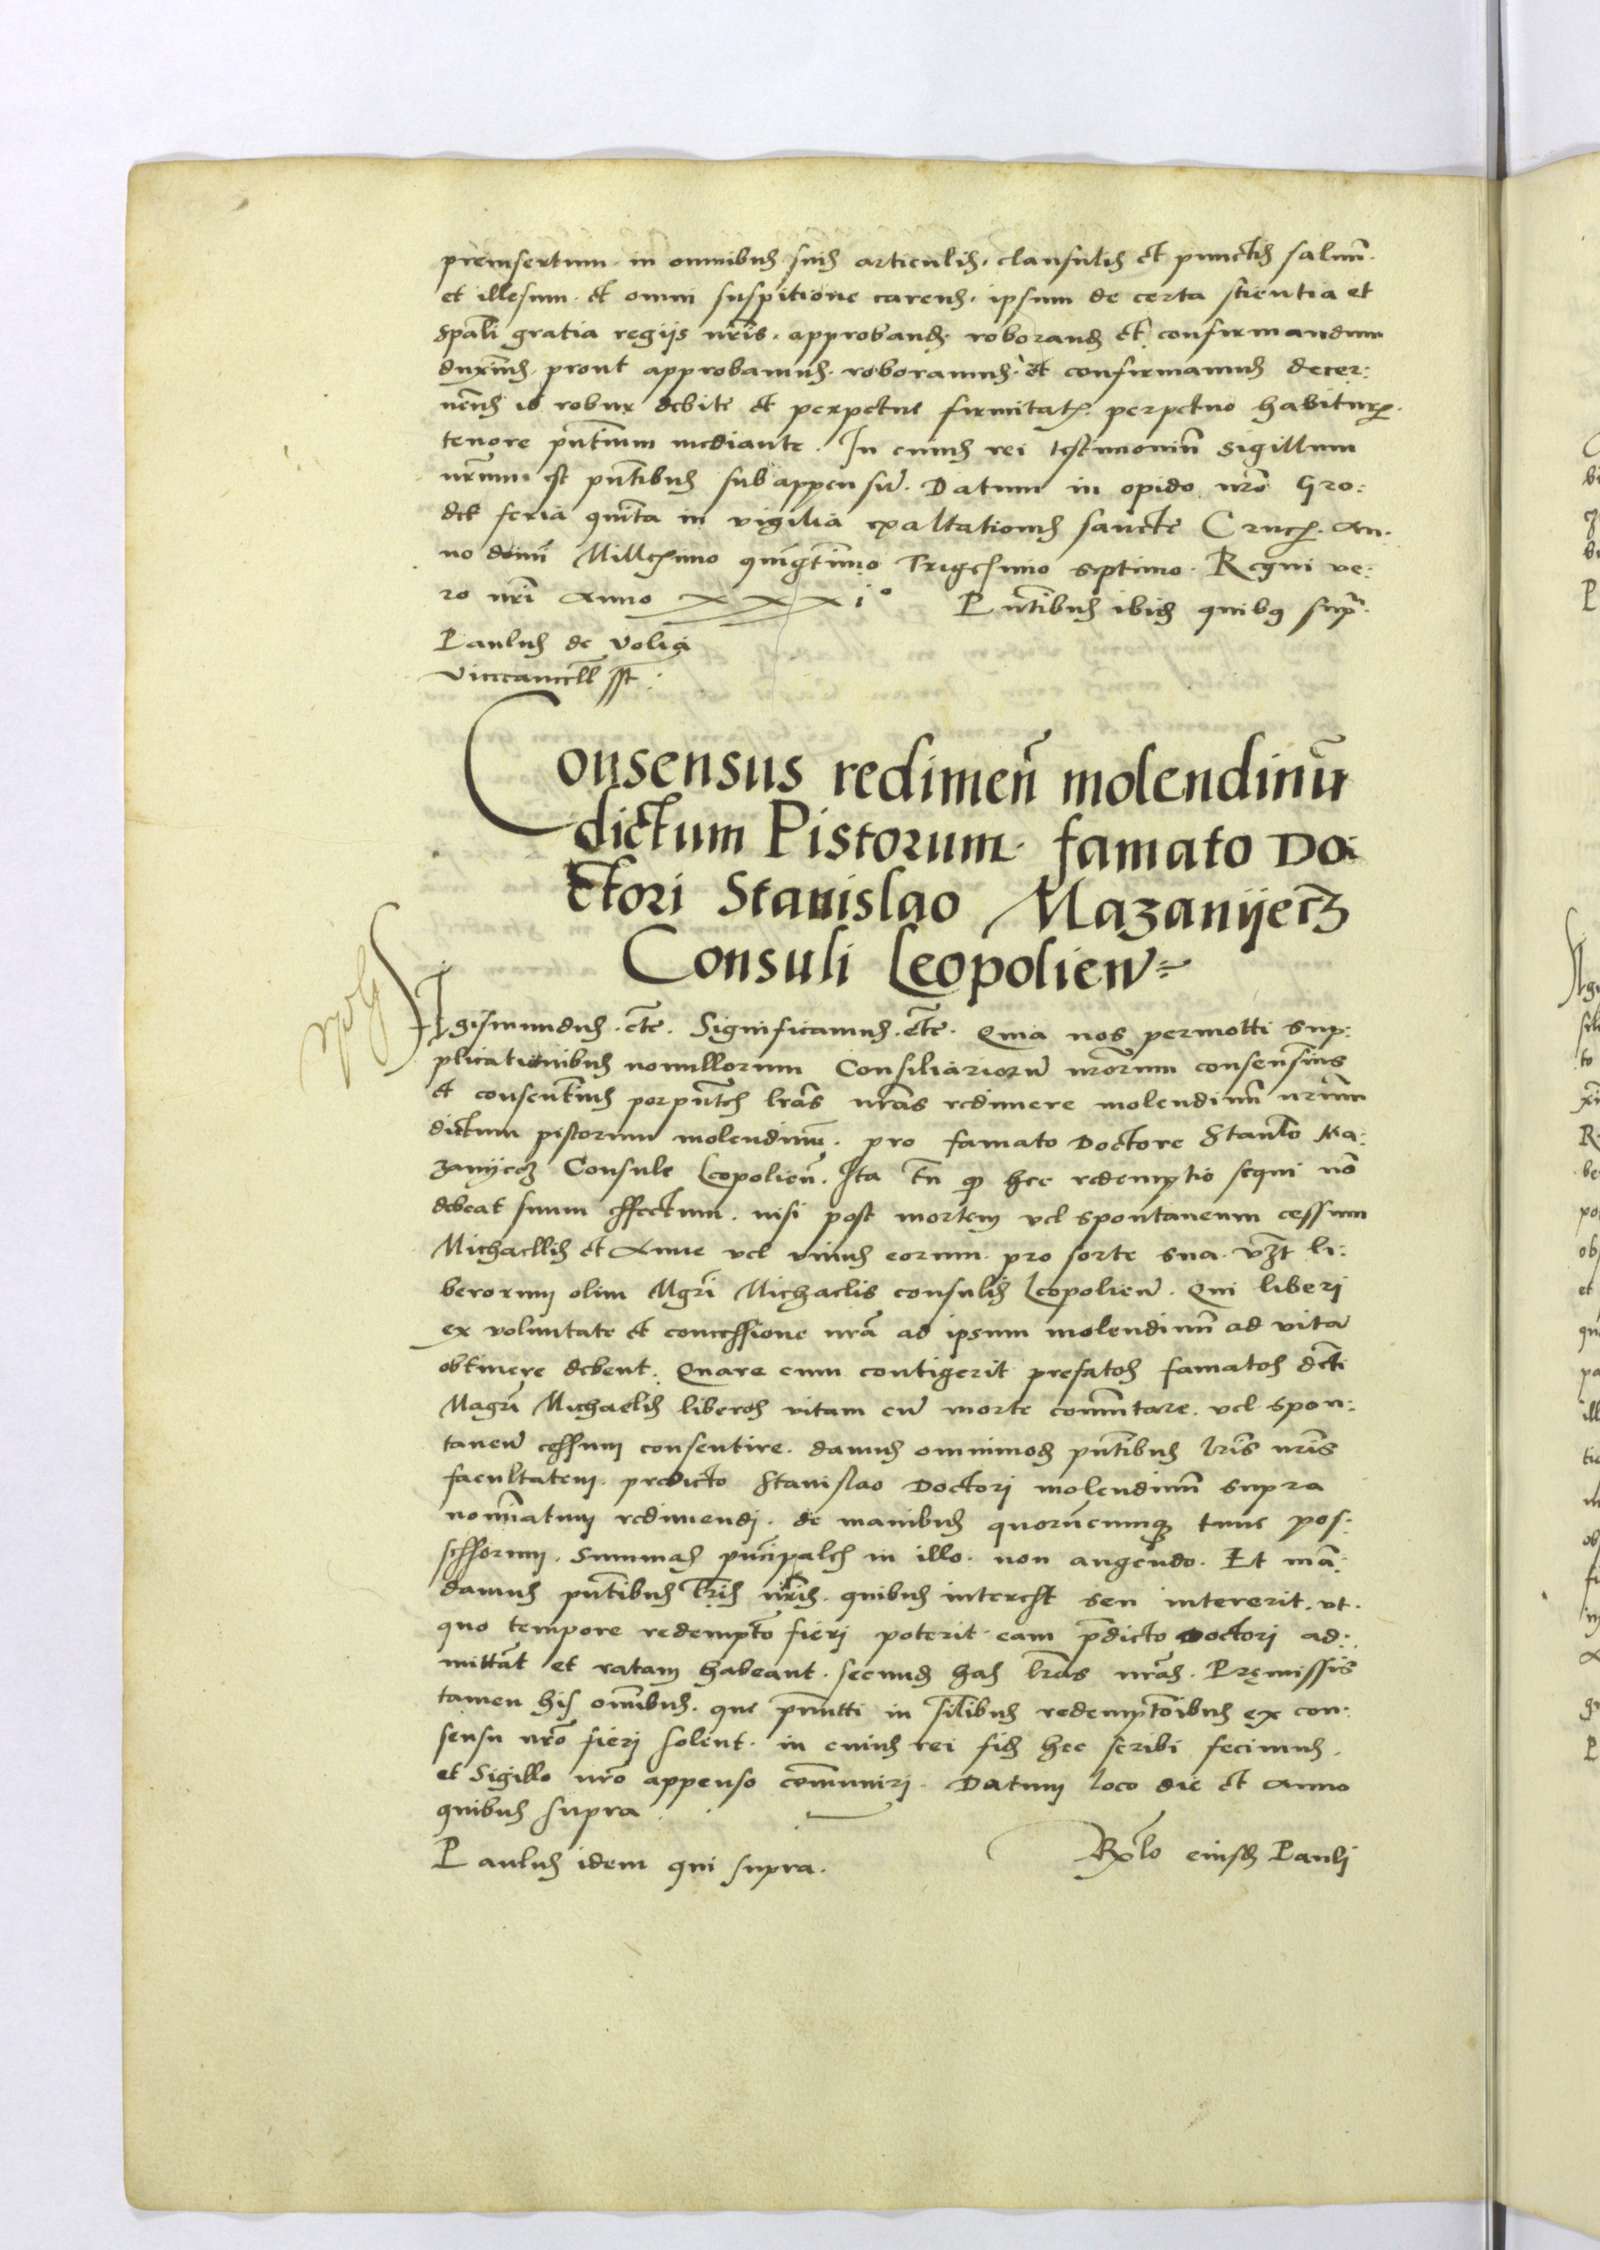 preinsertum. in omnibus suis articulis. clausulis et punctis saluũ.
et illesum. et omni suspitione carens. ipsum de certa scientia et
spali gratia regijs nris. approband. roborand et confirmandum
duximus. prout approbamus. roboramus. et confirmamus decer:
nens id robur debite et perpetue firmitatis. perpetuo habiturum.
tenore pntium mediante. In cuius rei testimoniũ sigillum
nrum est pntibus subappensũ. Datum in opido nro Gro:
dek feria quinta in vigilia exaltationis sancte Crucis. An.
no domi Millesimo quingetimo Trigesimo septimo. Regni ve:
ro nri Anno XXXI° Pntibus ibid quibus supra
Paulus de Volia
Vicecancell sst.
Consensus redimeñ molendinũ
dictum Pistorum. famato Do:
ctori Stanislao Mazanyecz
Consuli Leopolien
Sigismundus. etc. Significamus. etc. Quia nos permotti sup:
plicationibus nonullorum Consiliariorũ nrorum consensimus
et consentimus per pntes lras nras redimere molendinũ nrum
dictum pistorum molendinũ. pro famato Doctore Stanlo Ma:
zanyecz Consule Leopolien. Ita tn q hec redemptio sequi nõ
debeat suum effectum. nisi post mortem vel spontaneum cessum
Michaellis et Anne vel vnius eorum. pro sorte sua. vzt li:
berorum olim Mgri Michaelis consulis Leopolien. Qui liberi
ex voluntate et concessione nra ad ipsum molendinũ ad vitã
obtinere debent. Quare cum contigerit prefatos famatos dcti
Magri Michaelis liberos vitam cũ morte comutare. vel spon:
taneũ cessum consentire. damus omnimod pntibus lris nris
facultatem. predicto Stanislao Doctori molendinũ supra
nominatum redimendi. de manibus quorũcumque tunc pos:
sessorum. Summas principales in illo. non augendo. Et mã:
damus pntibus lris nris. quibus interest seu intererit. vt.
quo tempore redempto fieri poterit eam pdicto Doctori ad:
mittãt et ratam habeant. secund has lras nras. Premissis
tamen his omibus. que pmitti in silibus redemptoibus ex con:
sensu nro fieri solent. in cuius rei fid hec scribi fecimus.
et Sigillo nro appenso comuniri. Datum loco die et Anno
quibus supra
Paulus idem qui supra. Rlo eiusd Pauli